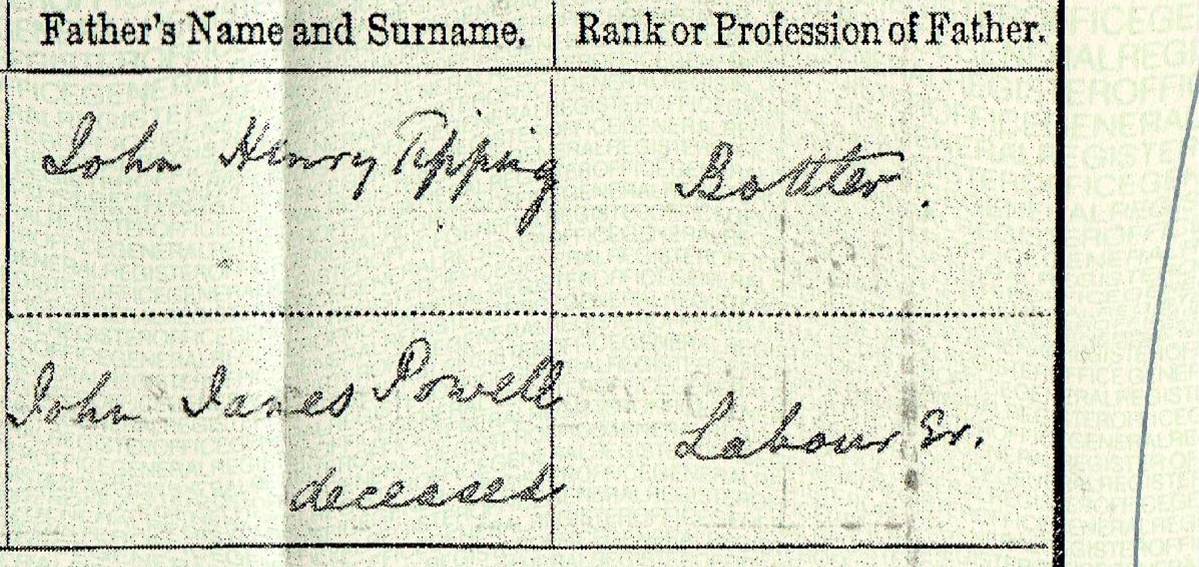 Father's Name and Surname. Rank or Profession of Father.
John Henry Tipping Bottler.
John James Powell
deceased Labourer.